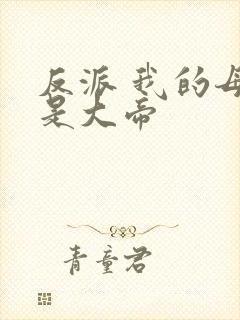 反派我的母
是大帝
青童君